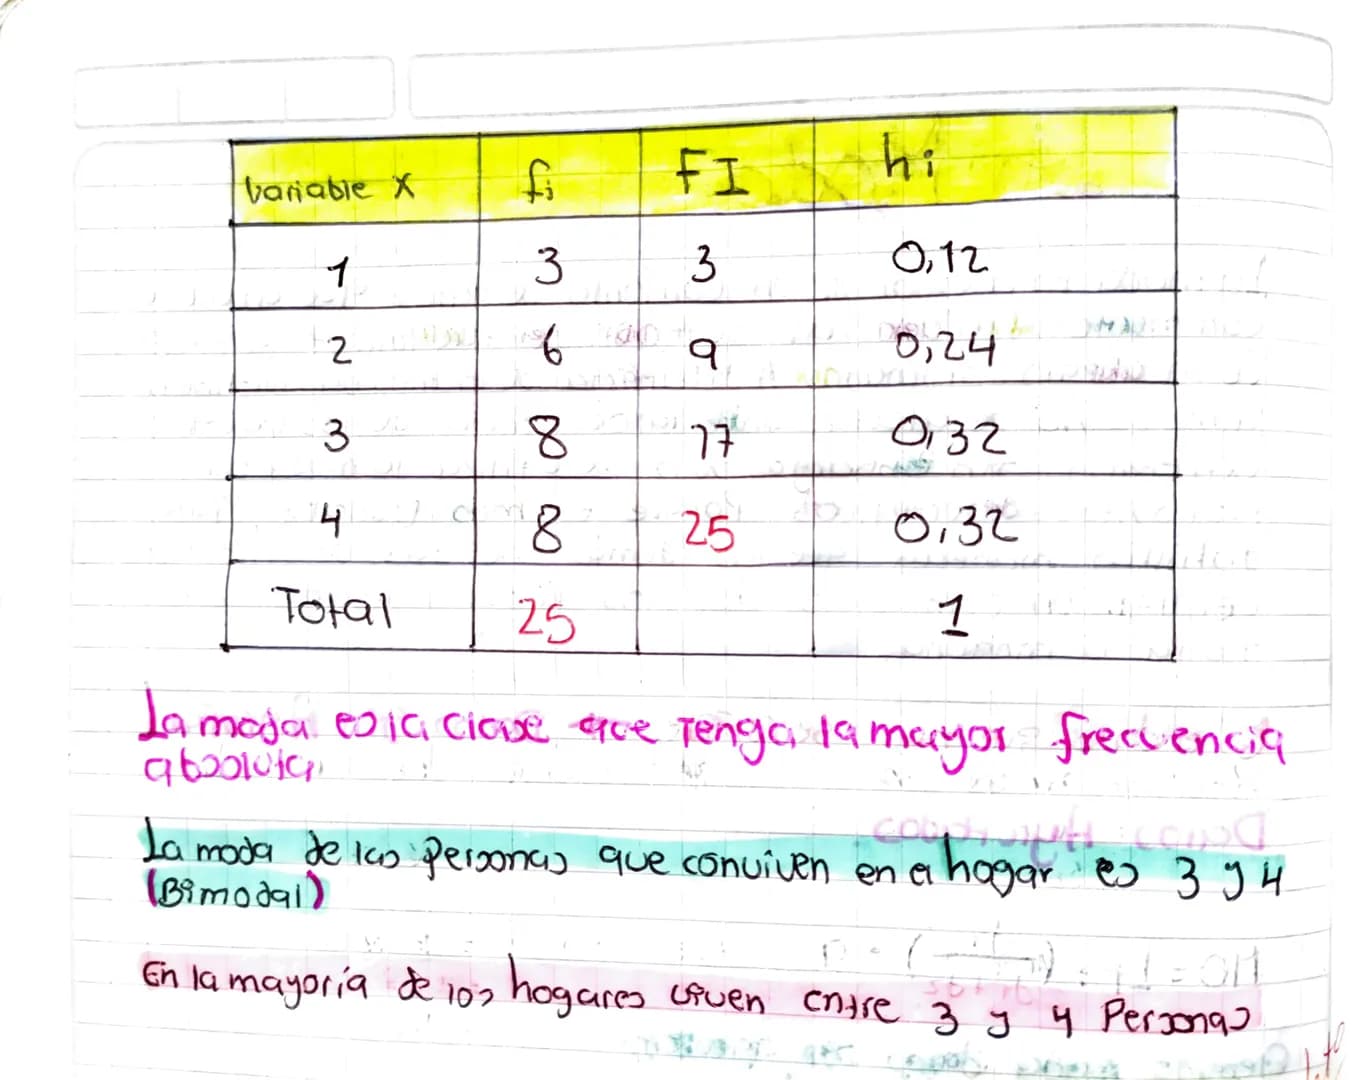 Variable X fi FI hi
1 3 3 0,12
2 6 9 0,24
3 8 17 0,32
4 8 25 0,32
Total 25 1
La moda es la clase que tenga la mayor frecuencia
absoluta
La moda de las personas que conviven en el hogar es 3 y 4
(Bimodal)
En la mayoría de los hogares viven entre 3 y 4 Personas